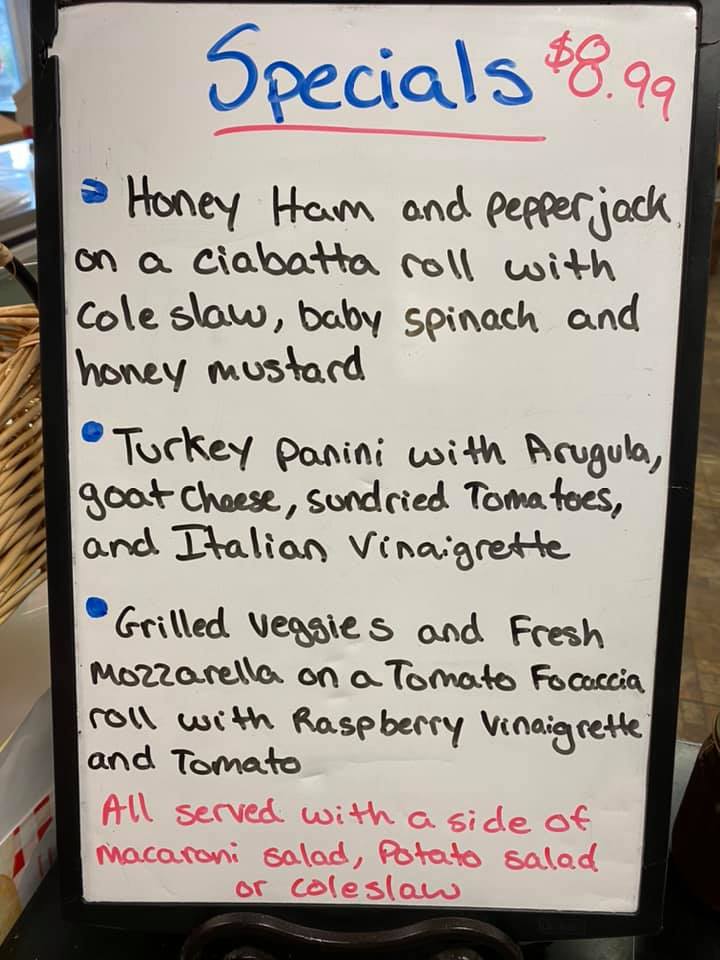 Specials $8.99
• Honey Ham and pepperjack
on a ciabatta roll with
Cole slaw, baby spinach and
honey mustard
• Turkey panini with Arugula,
goat cheese, sundried Tomatoes,
and Italian Vinaigrette
• Grilled veggies and Fresh
Mozzarella on a Tomato Focaccia
roll with Raspberry Vinaigrette
and Tomato
All served with a side of
macaroni salad, Potato salad
or coleslaw